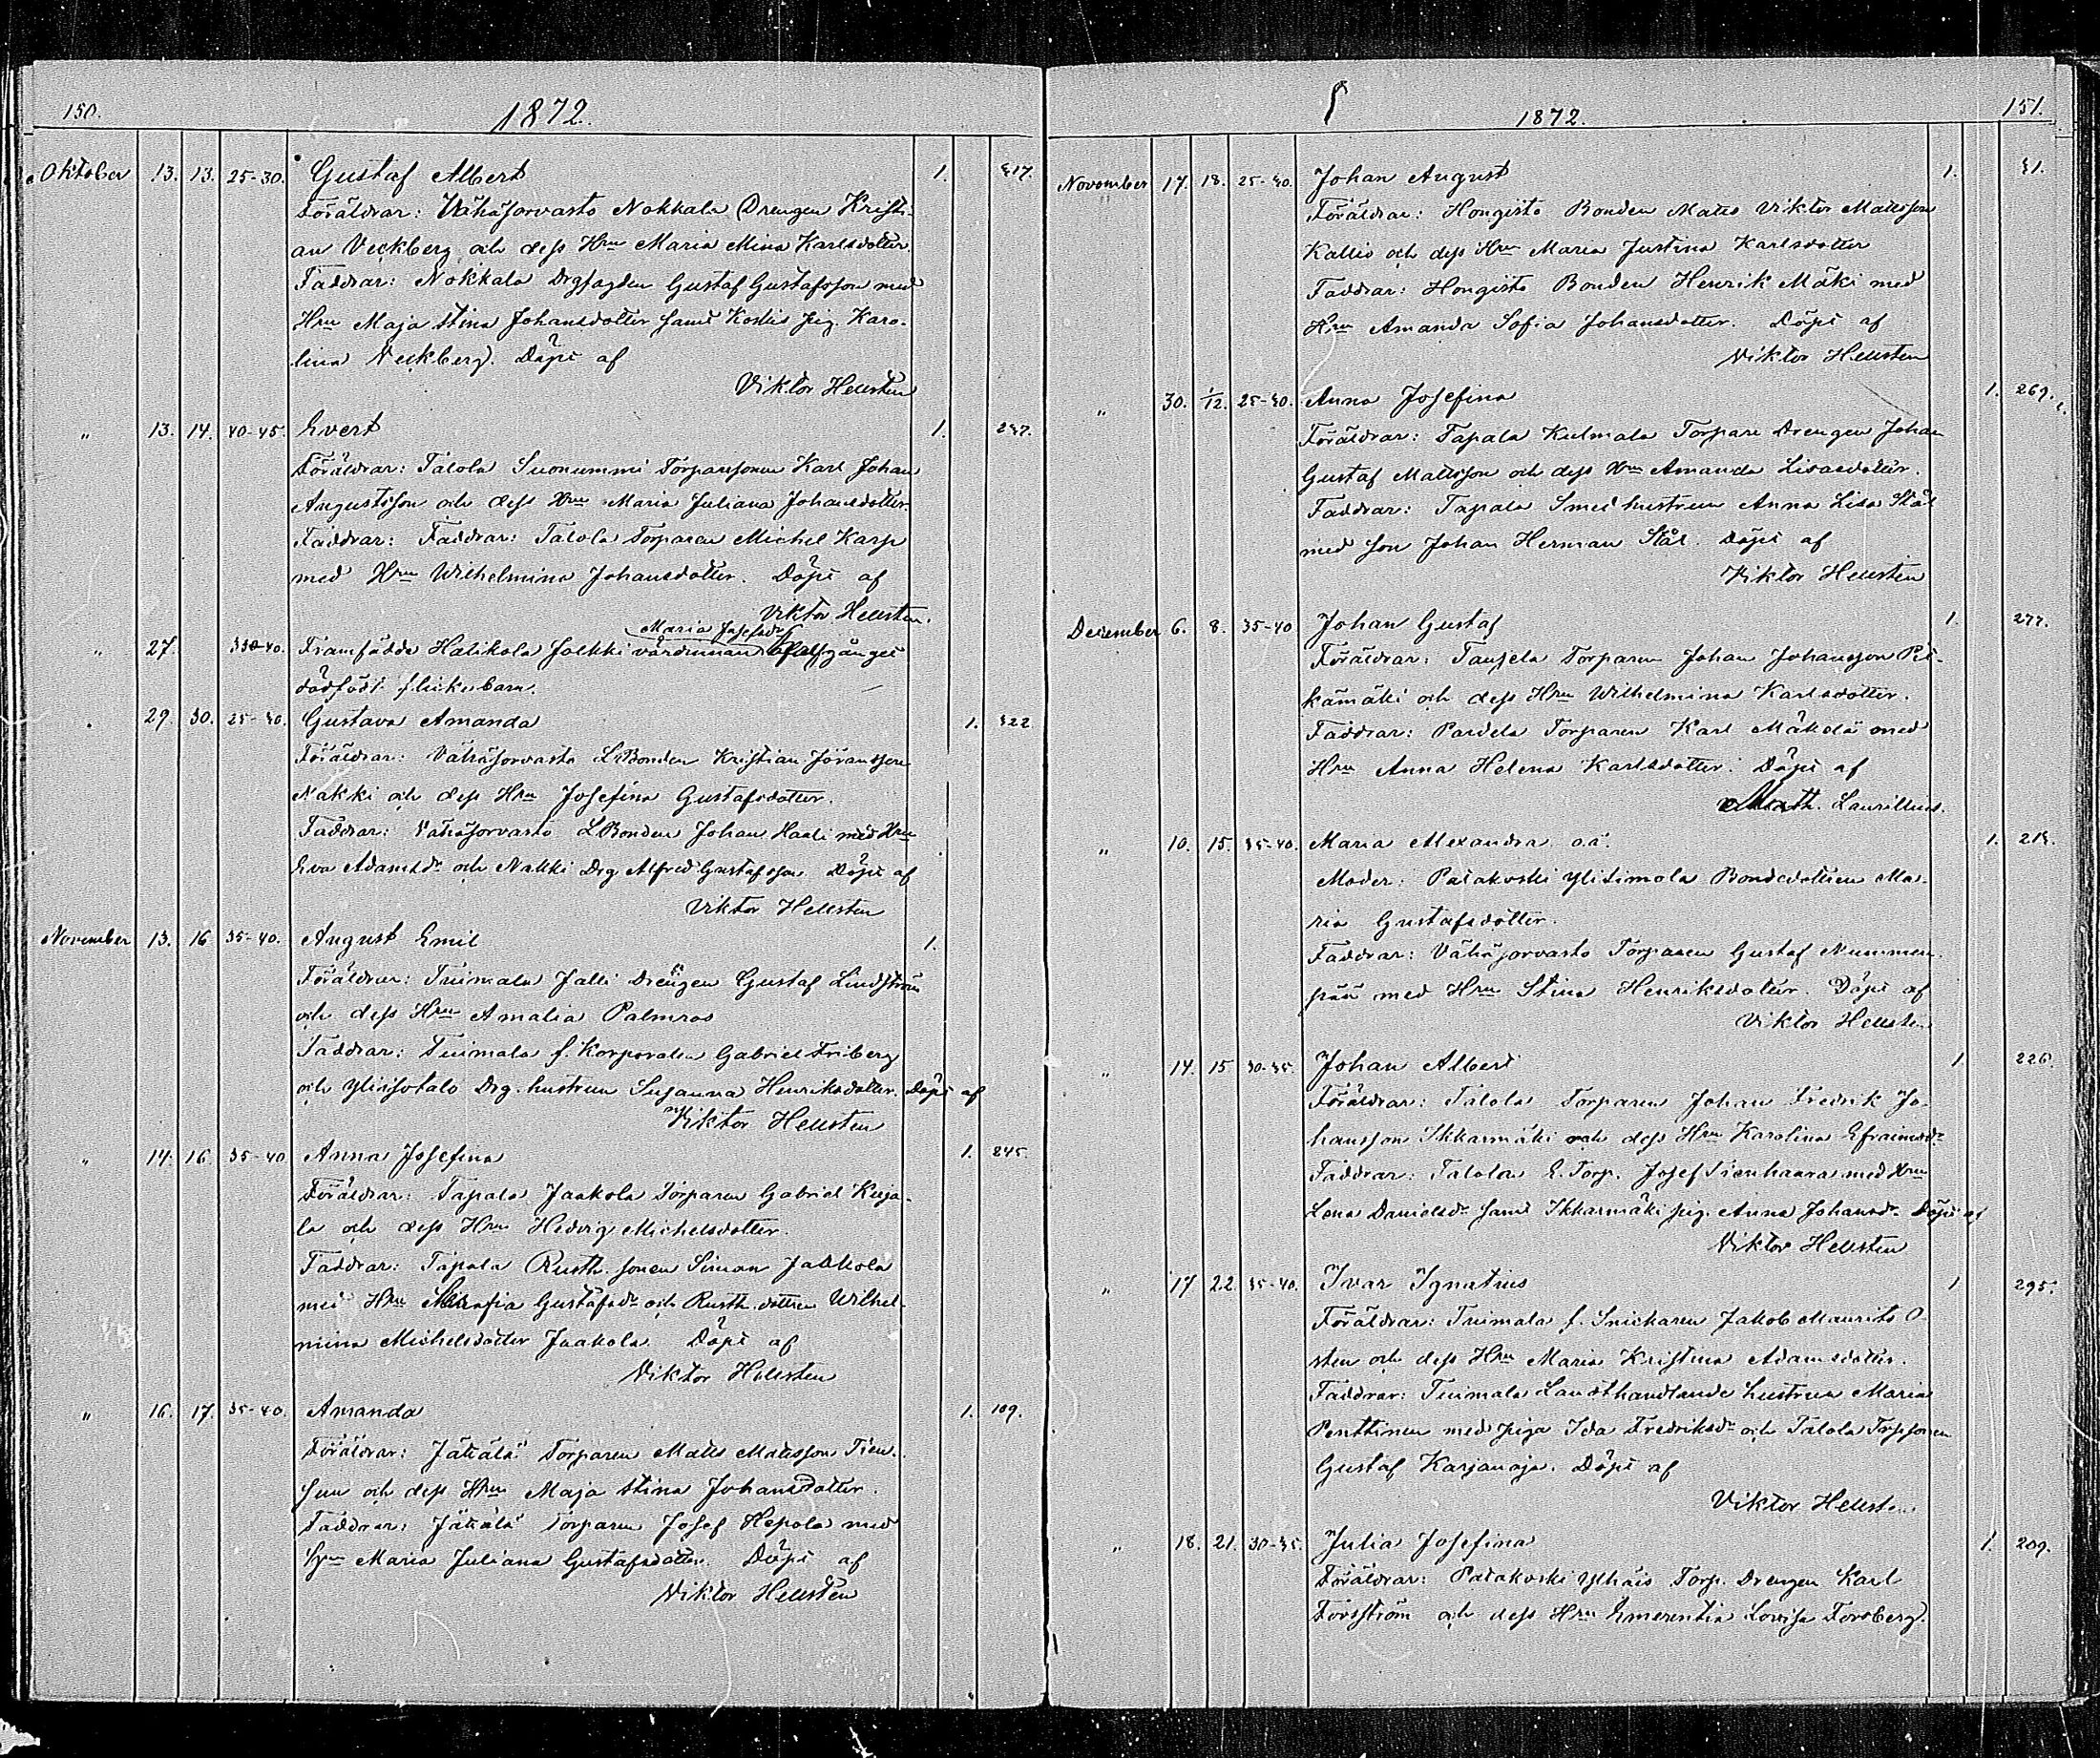 150.
1872.
Oktober 13. 13. 25-30. Gustaf Albert 1. 317.
Föräldrar: Vähäjorvasto Nokkala Drengen Kristi-
an Veckberg och dess Hru Maria Mina Karlsdotter.
Faddrar: Nokkala Gustaf Gustafsson med
Hru Maja Stina Johansdotter samt pig. Karo-
lina Veckberg. Döpt af
Viktor Hellsten
" 13. 14. 40-45. Evert 1. 247.
Föräldrar: Talola Suonummi Torparsonen Karl Johan
Augustsson och dess Hru Maria Juliana Johansdotter.
Faddrar: Faddrar: Talola Torparen Michel Karp
med Hru Wilhelmina Johansdotter. Döpt af
Viktor Hellsten.
Maria Josefsdr
" 27. 40. Framfödde Hatikola Jolkki
dödfödt flickebarn.
29. 30. 25-30. Gustava Amanda 1. 322
Föräldrar: Vähäjorvasto LBonden Kristian Göransson
Nakki och dess Hru Josefina Gustafsdotter.
Faddrar: Vähäjorvasto LBonden Johan Haali med Hru
Eva Adamsdr och Nakki Drg Alfred Gustafsson Döpt af
Viktor Hellsten
November 13. 16 35-40. August Emil 1.
Föräldrar: Tuimala Jalli Drengen Gustaf Lindström
och dess Hru Amalia Palmros
Faddrar: Tuimala f. Korporalen Gabriel Friberg
och Ylissotalo Drg. hustrun Susanna Henriksdotter. Döpt af
Viktor Hellsten
" 14. 16. 35-40 Anna Josefina 1. 245
Föräldrar: Tapala Jaakola Torparen Gabriel Kuja-
la och dess Hru Hedvig Michelsdotter.
Faddrar: Tapala Rusth. sonen Simon Jaakola
med Hru Gustafsdr och Rusth. dottren Wilhel-
mina Michelsdotter Jaakola. Döpt af
Viktor Hellsten
" 16. 17. 35-40. Amanda 1. 109.
Föräldrar: Jätiälä Torparen Matts Mattsson Tien-
suu och dess Hru Maja Stina Johansdotter.
Faddrar: Jätiälä Torparen Josef Hepola med
Hru Maria Juliana Gustafsdotter. Döpt af
Viktor Hellsten
1872.
151.
November 17. 18. 25-30. Johan August 1. 31.
Föräldrar: Hongisto Bonden Matts Viktor Mattsson
Kallio och dess Hru Maria Justina Karlsdotter
Faddrar: Hongisto Bonden Henrik Mäki med
Hru Amanda Sofia Johansdotter. Döpt af
Viktor Hellsten
" 30. 1/12. 25-30. Anna Josefina 1. 269.
Föräldrar: Tapala Kulmala Torpare Drengen Johan
Gustaf Mattsson och dess Hru Amanda Lisasdotter.
Faddrar: Tapala Smed hustrun Anna Lisa Stål
med son Johan Herman Stål. Döpt af
Viktor Hellsten
December 6. 8. 35-40 Johan Gustaf 1. 277.
Föräldrar: Torparen Johan Johansson Pi-
kämäki och dess Hru Wilhelmina Karlsdotter.
Faddrar: Pardela Torparen Karl Mäkelä med
Hru Anna Helena Karlsdotter. Döpt af
Math. Laurillius.
" 10. 15. 35-40. Maria Alexandra o.ä. 1. 213.
Moder: Patakoski Ylitimola Bondedottren Ma-
ria Gustafsdotter.
Faddrar: Vähäjorvasto Torparen Gustaf Nummen-
pää med Hru Stina Henriksdotter. Döpt af
Viktor Hellsten
" 14. 15 30-35. Johan Albert 1. 226.
Föräldrar: Talola Torparen Johan Fredrik Jo-
hansson Ikkarmäki och dess Hru Karolina Efraimsdr.
Faddrar: Talola E. Torp. Josef Sienhaara med Hru
Lena Danielsdr samt Ikkarmäki pig. Anna Johansdr. Döpt af
Viktor Hellsten
" 17 22. 35-40. Ivar Ignatius 1 295.
Föräldrar: Tuimala f. Snickaren Jakob Maurits O-
sten och dess Hru Maria Kristina Adamsdotter.
Faddrar: Tuimala Landthandlande hustrun Maria
Penttinen med piga Ida Fredriksdr och Talola Trpsonen
Gustaf Karjanoja. Döpt af
Viktor Hellsten
" 18. 21. 30-35. Julia Josefina 1. 209.
Föräldrar: Patakoski Ylhäis Torp. Drengen Karl
Forsström och dess Hru Emerentia Lovisa Forsberg.